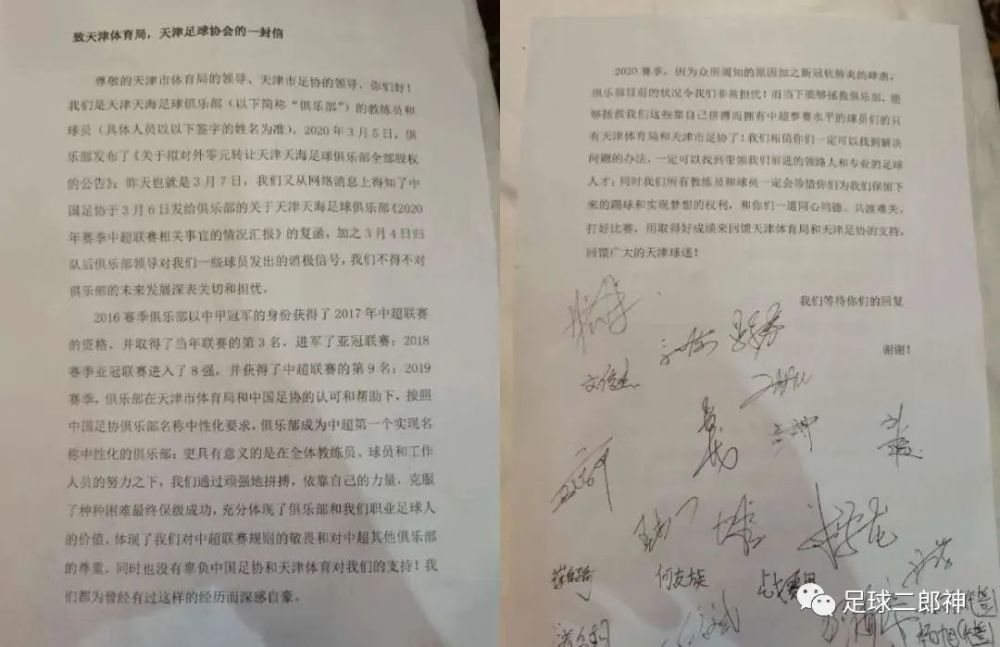 致天津体育局，天津足球协会的一封信
尊敬的天津市体育局的领导、天津市足协的领导，你们好！
我们是天津天海足球俱乐部（以下简称“俱乐部”）的教练员和
球员（具体人员以以下签字的姓名为准），2020年3月5日，俱
乐部发布了《关于拟对外零元转让天津天海足球俱乐部全部股权
的公告》；昨天也就是3月7日，我们又从网络消息上得知了中
国足协于3月6日发给俱乐部的关于天津天海足球俱乐部《2020
年赛季中超联赛相关事宜的情况汇报》的复函，加之3月4日归
队后俱乐部领导对我们一些球员发出的消极信号，我们不得不对
俱乐部的未来发展深表关切和担忧。
2016赛季俱乐部以中甲冠军的身份获得了2017年中超联赛
的资格，并取得了当年联赛的第3名，进军了亚冠联赛；2018
赛季亚冠联赛进入了8强，并获得了中超联赛的第9名；2019
赛季，俱乐部在天津市体育局和中国足协的认可和帮助下，按照
中国足协俱乐部名称中性化要求，俱乐部成为中超第一个实现名
称中性化的俱乐部；更具有意义的是在全体教练员、球员和工作
人员的努力之下，我们通过顽强地拼搏，依靠自己的力量，克服
了种种困难最终保级成功，充分体现了俱乐部和我们职业足球人
的价值，体现了我们对中超联赛规则的敬畏和对中超其他俱乐部
的尊重，同时也没有辜负中国足协和天津体育对我们的支持！我
们都为曾经有过这样的经历而深感自豪。
2020赛季，因为众所周知的原因加之新冠状肺炎的肆虐，
俱乐部目前的状况令我们非常担忧！而当下能够拯救俱乐部，能
够拯救我们这些靠自己拼搏而拥有中超参赛水平的球员们的只
有天津体育局和天津市足协了！我们相信你们一定可以找到解决
问题的办法，一定可以找到带领我们前进的领路人和专业的足球
人才；同时我们所有教练员和球员一定会珍惜你们为我们保留下
来的踢球和实现梦想的权利，和你们一道同心同德、共渡难关，
打好比赛，用取得好成绩来回馈天津体育局和天津足协的支持，
回馈广大的天津球迷！
我们等待你们的回复
谢谢！
何友族
杨旭
足球二郎神